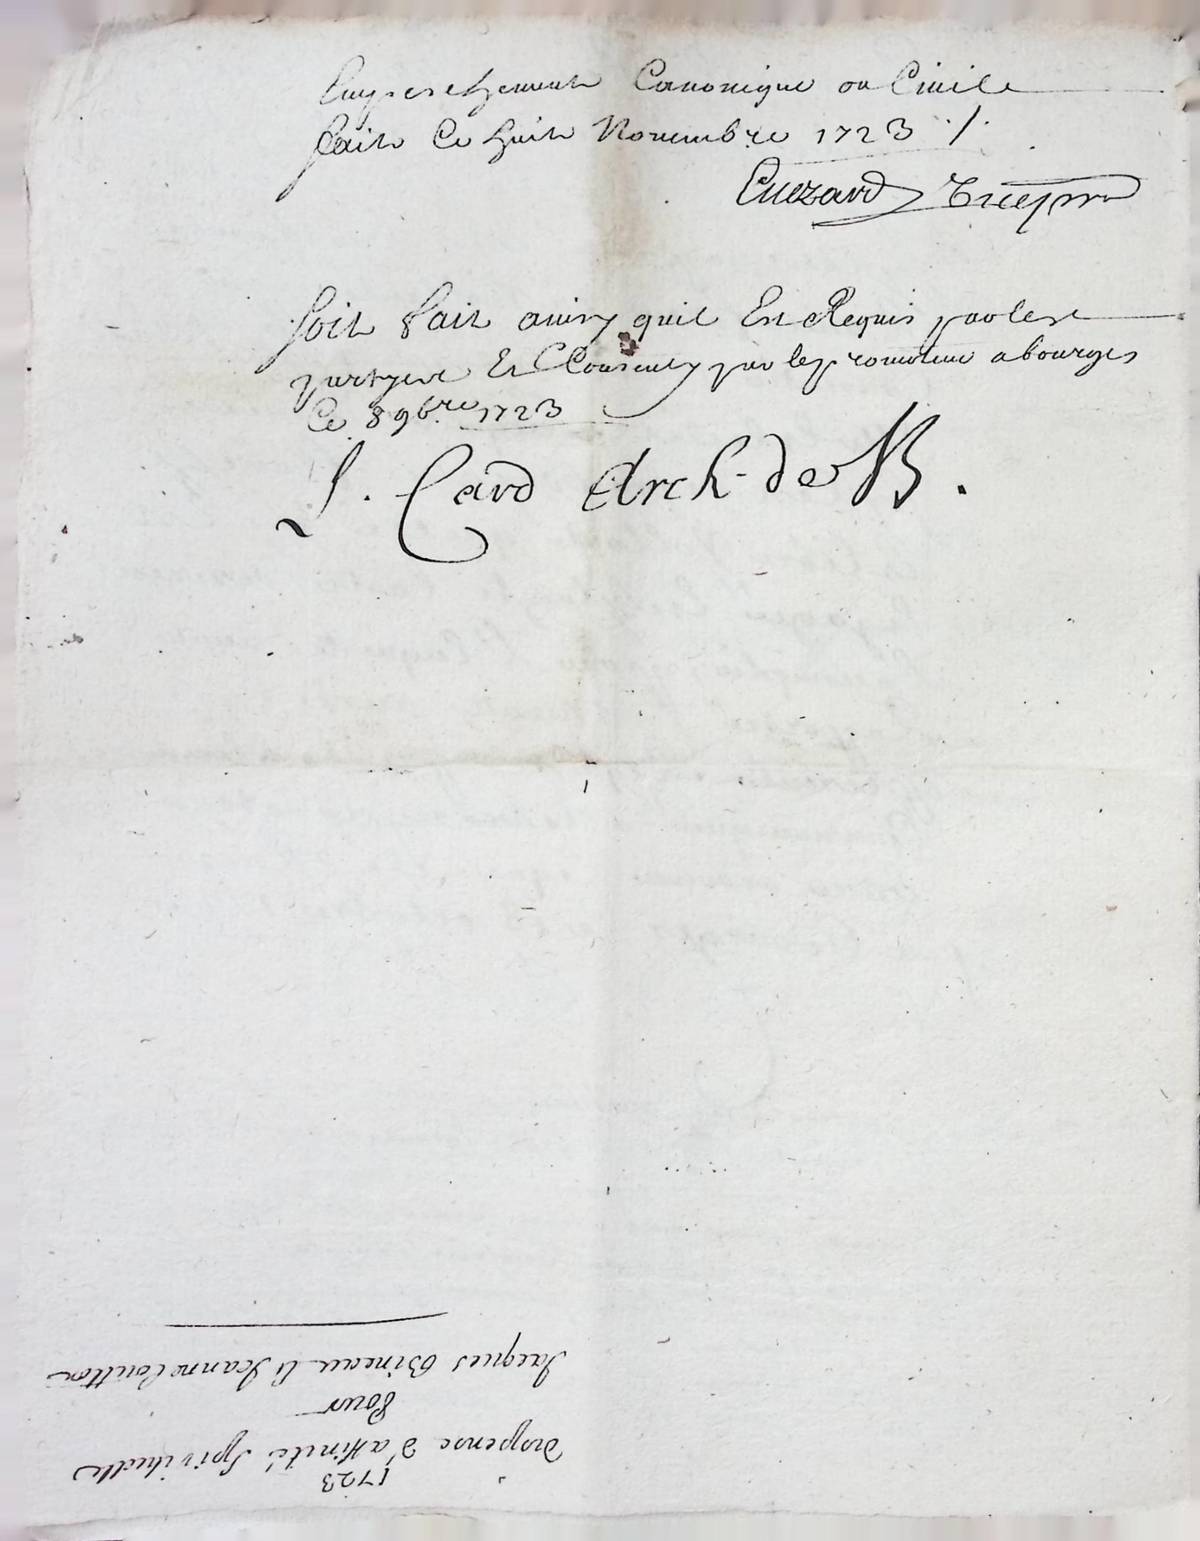 Empeschement Canonique ou Civile
fait Ce huit Novembre 1723 ./.
Cuezard
Soit fait ainsy quil Est Requis par les
partyes Et Consenty par le promoteur a bourges
Ce 8 9bre 1723
L. Card Arch. de B.
1723
dispense d'affinité Spirituelle
Pour
Jacques Bineau & Jeanne